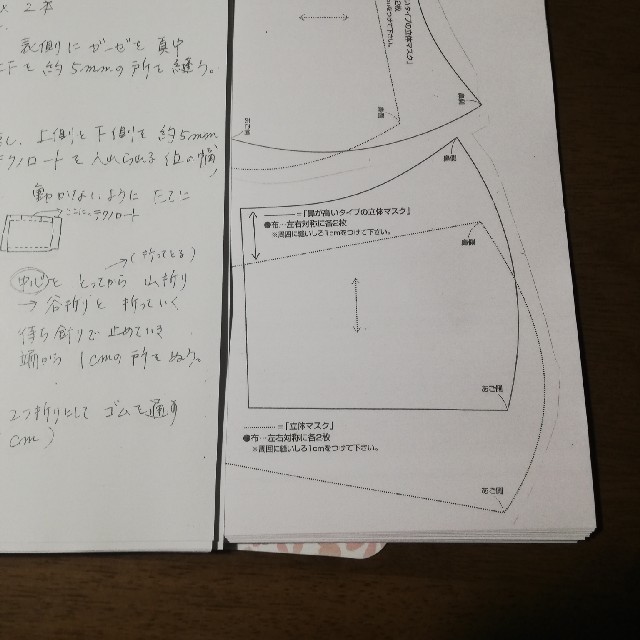 x 2本
表側にガーゼを真中
上下を約5mmの所を縫う。
し、上側と下側を約5mm
テクノロートを入れられる位の
動かないようにたてに
ここにテクノロート
(折ってとる)
中心をとってから山折り
→谷折りと折っていく
待ち針で止めていき
端から1cmの所をぬう。
2つ折りにして ゴムを通す
cm)
タイプの立体マスク」
2枚
cmをつけて下さい。
鼻側
鼻側
あご側
鼻側
=「鼻が高いタイプの立体マスク」
●布…左右対称に各2枚
※周囲に縫いしろ1cmをつけて下さい。
鼻側
あご側
=「立体マスク」
●布…左右対称に各2枚
※周囲に縫いしろ1cmをつけて下さい。
あご側